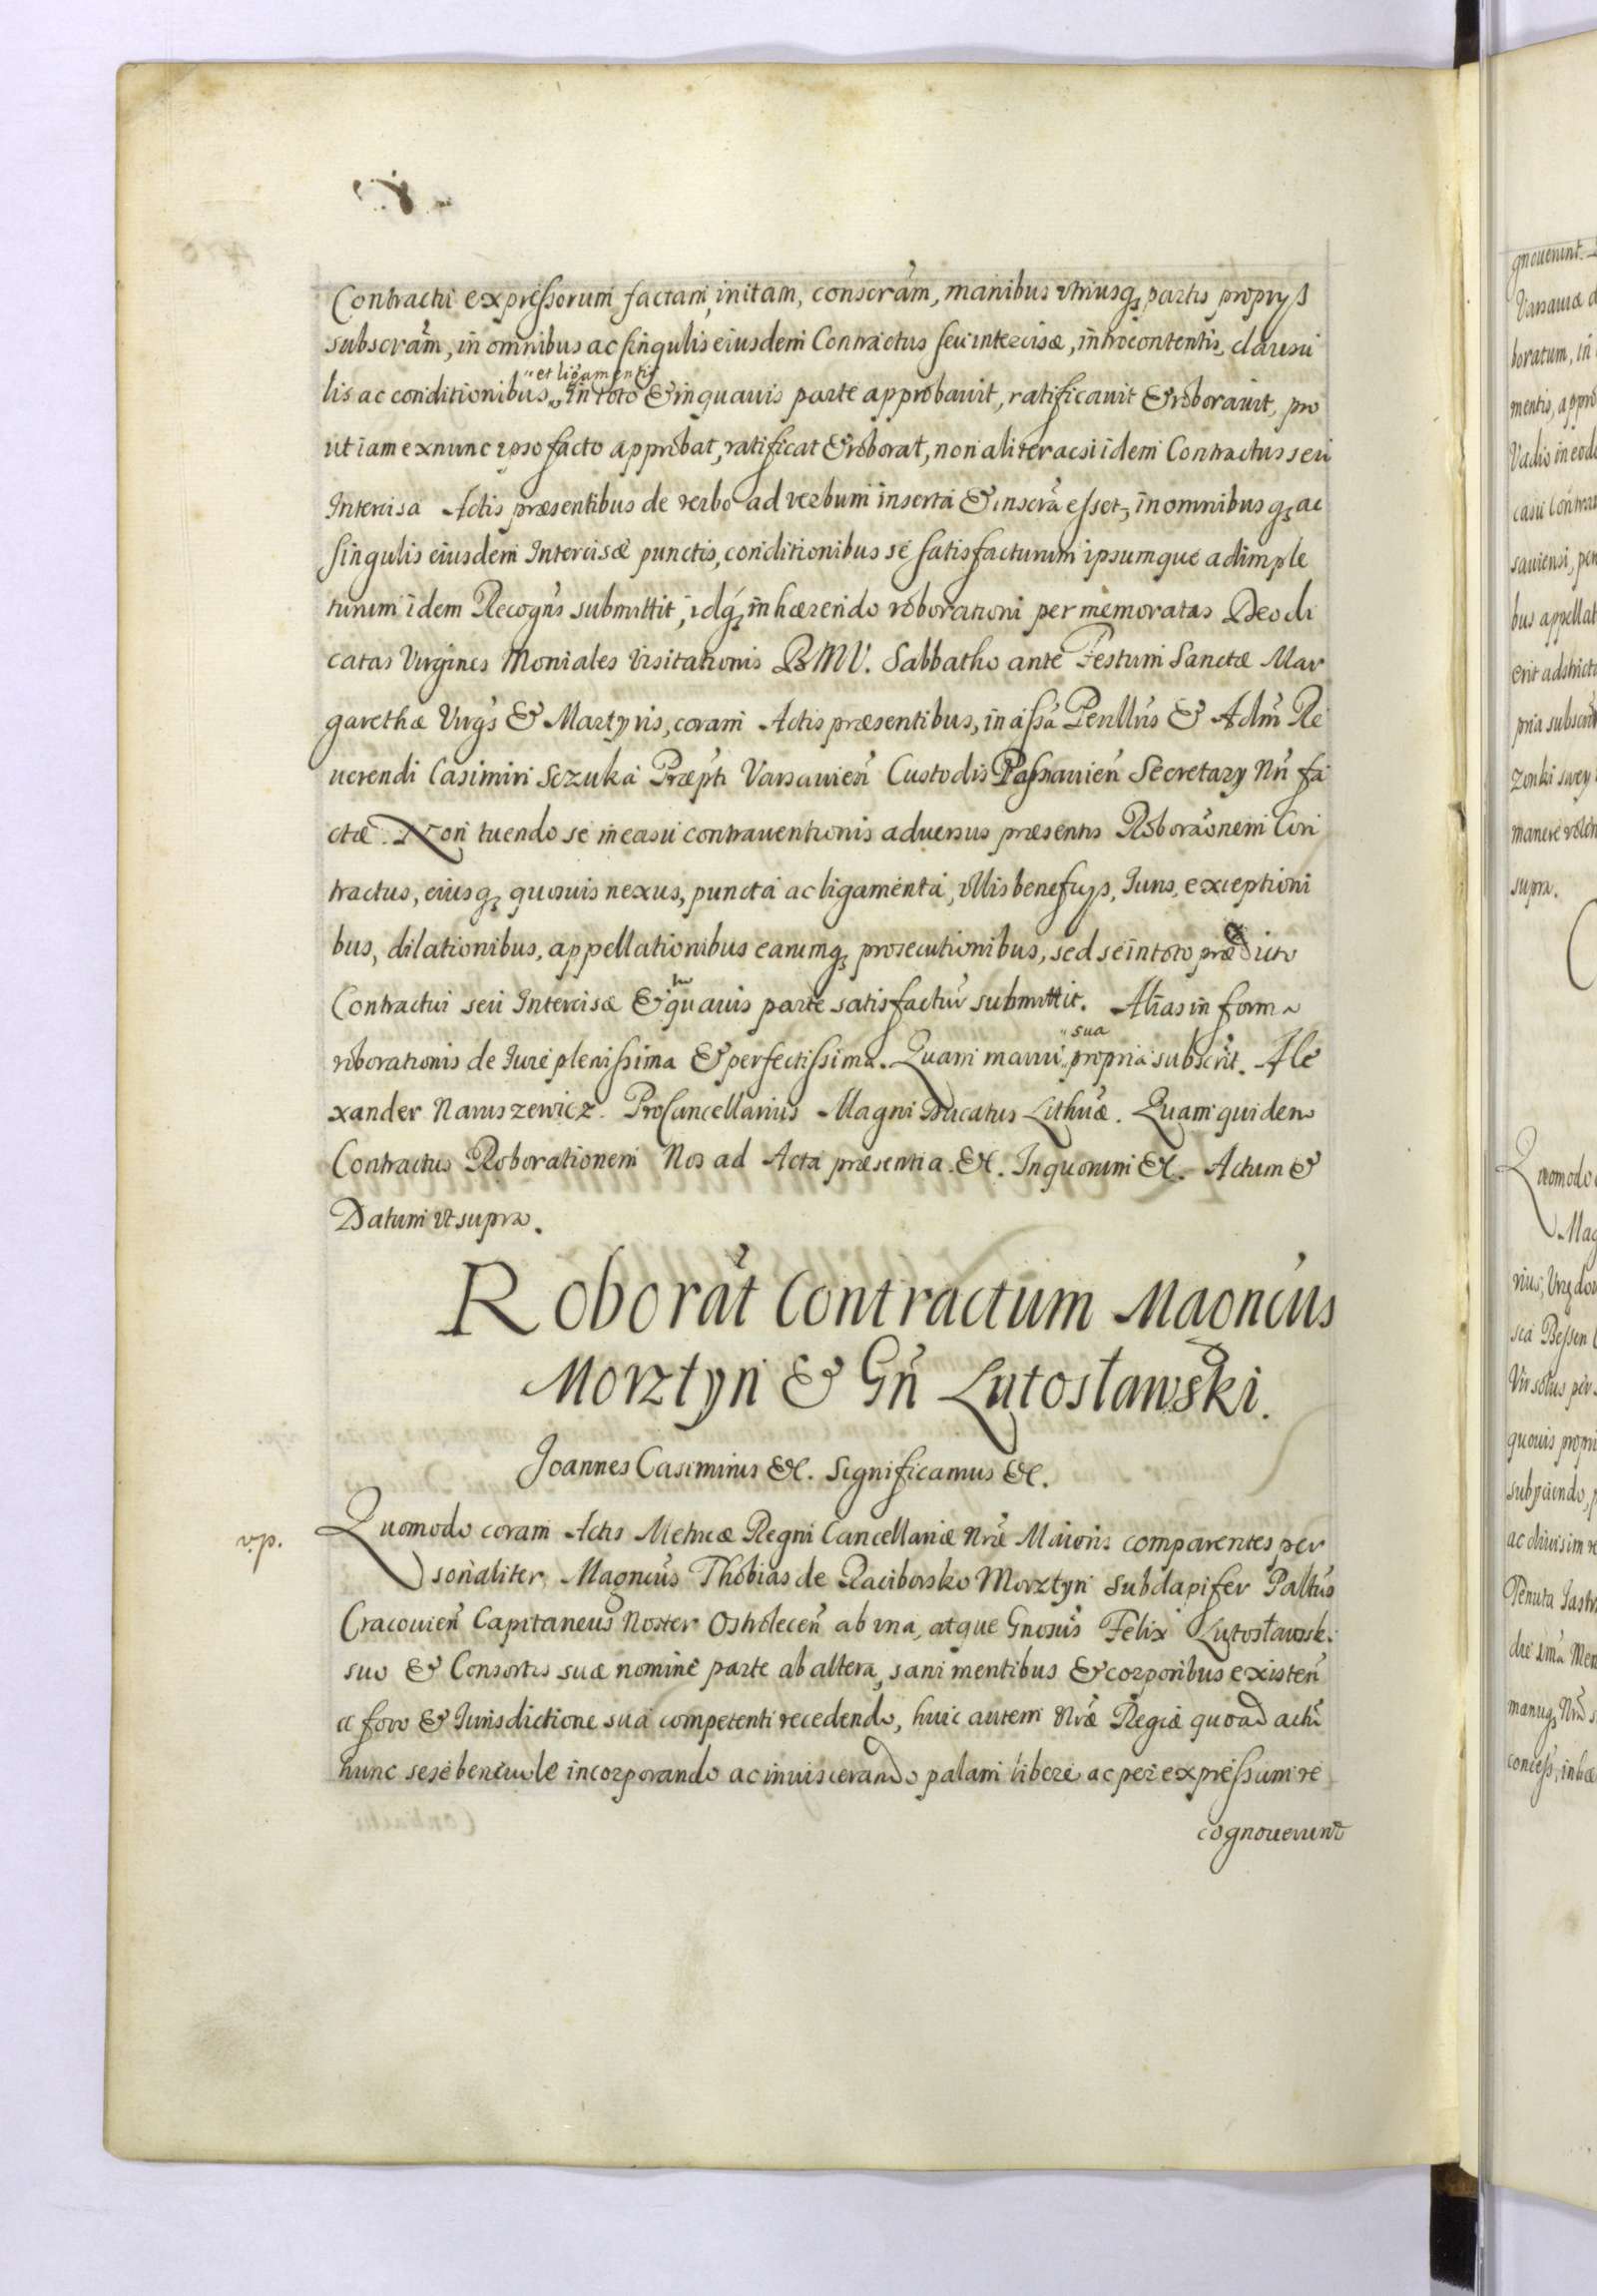 Contractu expressorum factam, initam, conscrãm, manibus vtriusq; partis proprijs
subscrãm, in omnibus ac singulis eiusdem Contractus seu intercisæ, introcontentis, clausu
lis ac conditionibus et ligamentis in toto & in quauis parte approbauit, ratificauit & roborauit, pro
ut iam ex nunc ipso facto approbat, ratificat & roborat, non aliter acsi idem Contractus seu
Intercisa Actis præsentibus de verbo ad verbum inserta & inscrã esset, in omnibus q; ac
singulis eiusdem Intercisæ punctis, conditionibus se satisfacturum ipsumque adimple
turum idem Recogñs submittit, idq; inhærendo roborationi per memoratas Deo di
catas Virgines Moniales Visitationis BMV. Sabbatho ante Festum Sanctæ Mar
garethæ Virgs & Martyris, coram Actis præsentibus, in assã Perillus & Adm̃ Re
uerendi Casimiri Sczuka Præpti Varsauien̄ Custodis Posnanien̄ Secretarij Nr̃i fa
ctæ. Non tuendo se in casu contrauentionis aduersus præsentis Roborãonem Con
tractus, eiusq; quosuis nexus, puncta ac ligamenta, vllis beneficijs, Juris, exceptioni
bus, dilationibus, appellationibus earumq; prosecutionibus, sed se in toto prædicto
Contractui seu Intercisæ & in quauis parte satisfactur̃ submittit. Alias in forma
roborationis de Jure plenissima & perfectissima. Quam manu sua propria subscrit. Ale
xander Naruszewicz. ProCancellarius Magni Ducatus Lithuæ. Quam quidem
Contractus Roborationem Nos ad Acta præsentia &c. In quorum &c. Actum &
Datum vt supra.
Roborãt Contractum Magncus
Morztyn & Gñ Lutosławski.
Joannes Casimirus &c. Significamus &c.
v.p.
Quomodo coram Actis Metricæ Regni Cancellariæ Nrẽ Maioris comparentes per
sonaliter, Magncus Thobias de Raciborsko Morztyn Subdapifer Paltus
Cracouien̄ Capitaneus Noster Ostrolecen̄ ab vna, atque Gnosus Felix Lutosławski
suo & Consortis suæ nomine parte ab altera, sani mentibus & corporibus existen̄
a foro & Jurisdictione sua competenti recedendo, huic autem Nrã Regiæ quoad actũ
hunc sese beneuole incorporando ac inuiscerando palam libere ac per expressum re
cognouerunt